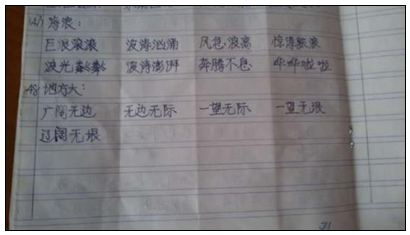 海浪：
巨浪滚滚 波涛汹涌 风急浪高 惊涛骇浪
波光粼粼 波涛澎湃 奔腾不息 哗哗啦啦
地方大：
广阔无边 无边无际 一望无际 一望无垠
辽阔无垠